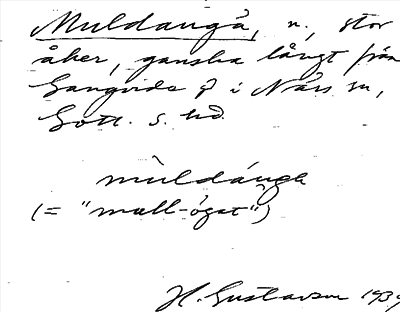 Muldaugå, n., stor
åker, ganska långt från
Gangvide g i Närs sn,
Gotl. s. hd.
mùldáugå
(= "mull-ögat")
H. Gustavson 1939